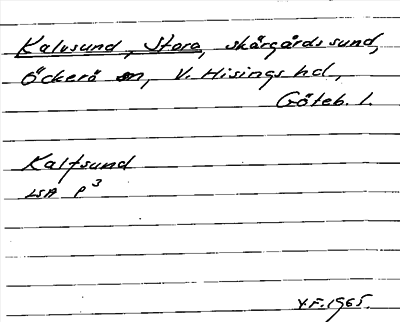 Kalvsund, Stora, skärgårdssund,
Öckerö sn, V. Hisings hd,
Göteb. l.
Kalfsund
LSA P3
V.F. 1965.